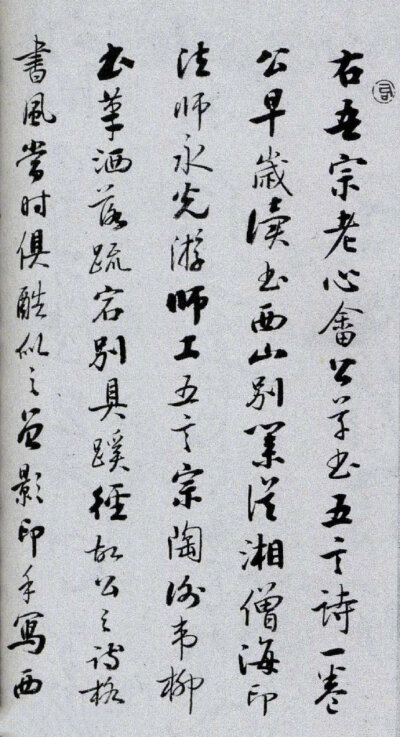 右吾宗老心畬公草書五言詩一卷
公早歲讀書西山別業從湘僧海印
法師永光游師工五言宗陶謝韋柳
書草洒落疏宕別具蹊徑故公之詩格
書風當时俱酷似之曾影印手寫西